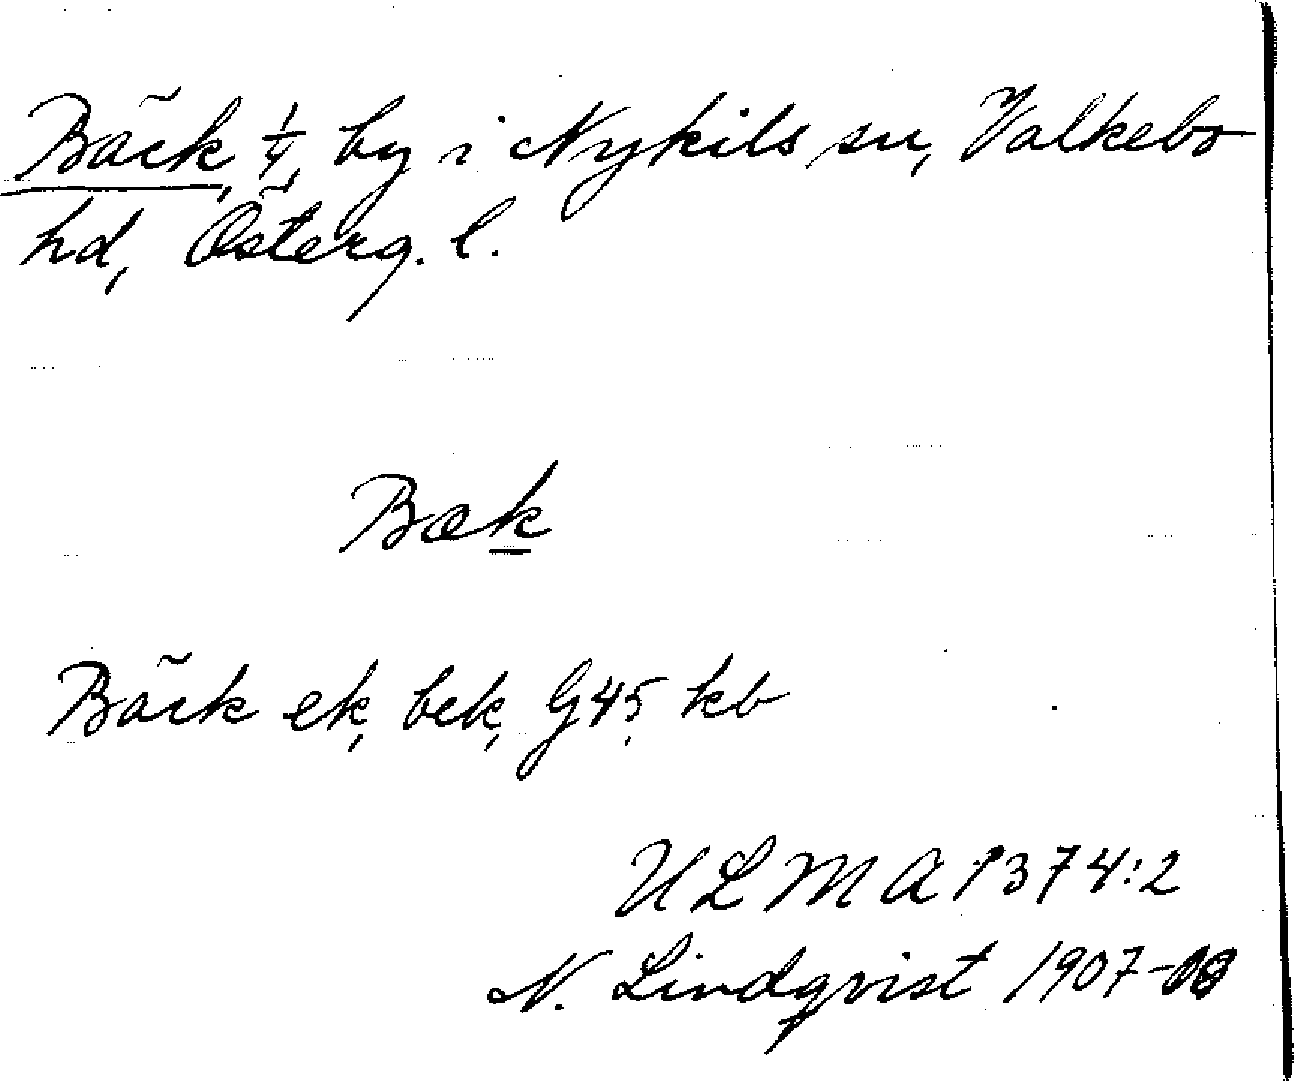 Bäck, 1/4, by i Nykils sn, Valkebo
hd, Österg. l.
Bæk
Bäck ek, bek, G45, kb
ULMA 1374:2
N. Lindqvist 1907-08